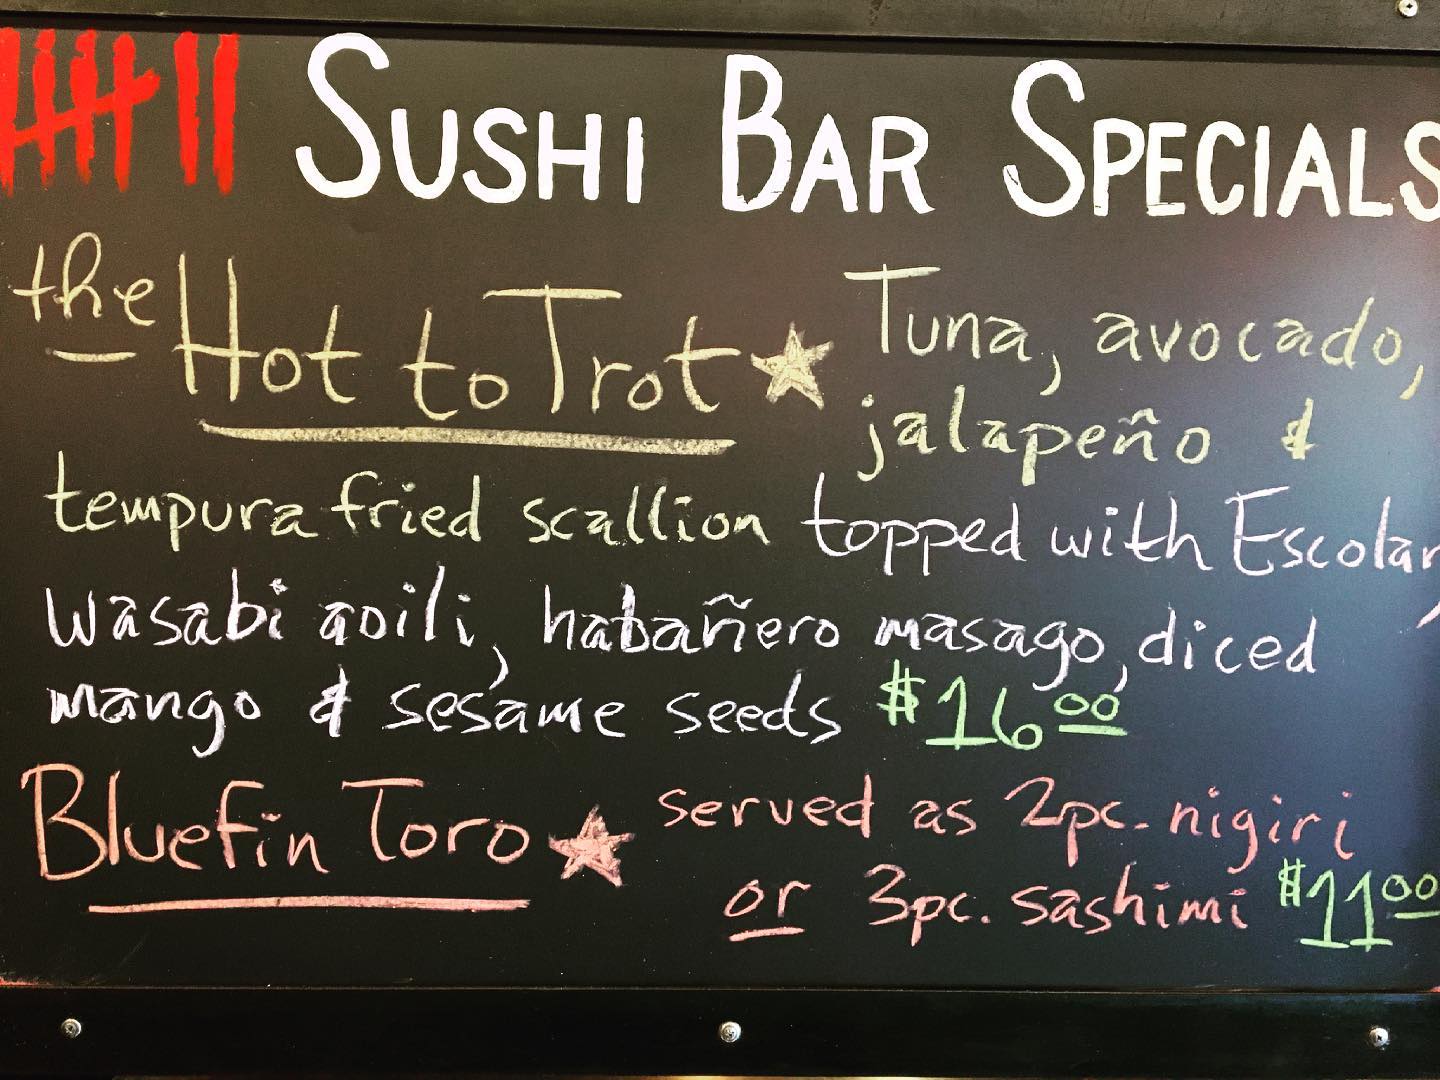 SUSHI BAR SPECIALS
the Hot to Trot ★ Tuna, avocado,
jalapeño &
tempura fried scallion topped with Escolar,
wasabi aoili, habañero masago, diced
mango & sesame seeds $16.00
Bluefin Toro ★ served as 2pc. nigiri
or 3pc. sashimi $11.00